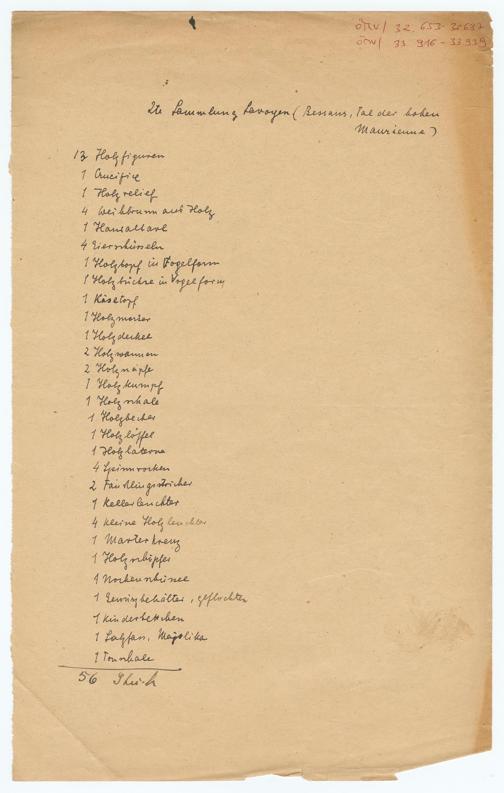 ÖMV/ 32.653-32.697
ÖMV/ 33.916-33.939
2te Sammlung Savoyen (Bessans, Tal der hohen
Maurienne)
13 Holzfiguren
1 Crucifix
1 Holzrelief
4 Weihbrunn aus Holz
1 Hausaltarl
4 Eierschüsseln
1 Holztopf in Vogelform
1 Holzbüchse in Vogelform
1 Käsetopf
1 Holzmörser
1 Holzdeckel
2 Holzwannen
2 Holznäpfe
1 Holzkumpf
1 Holzschale
1 Holzbecher
1 Holzlöffel
1 Holzlaterne
4 Spinnrocken
2 Fäustlingstricker
1 Kellerleuchter
4 kleine Holzleuchter
1 Marterkreuz
1 Holzschöpfer
1
1 Gewürzbehälter, geflochten
1 Kinderbettchen
1 Salzfass, Majolika
1 Tonschale
56 Stück